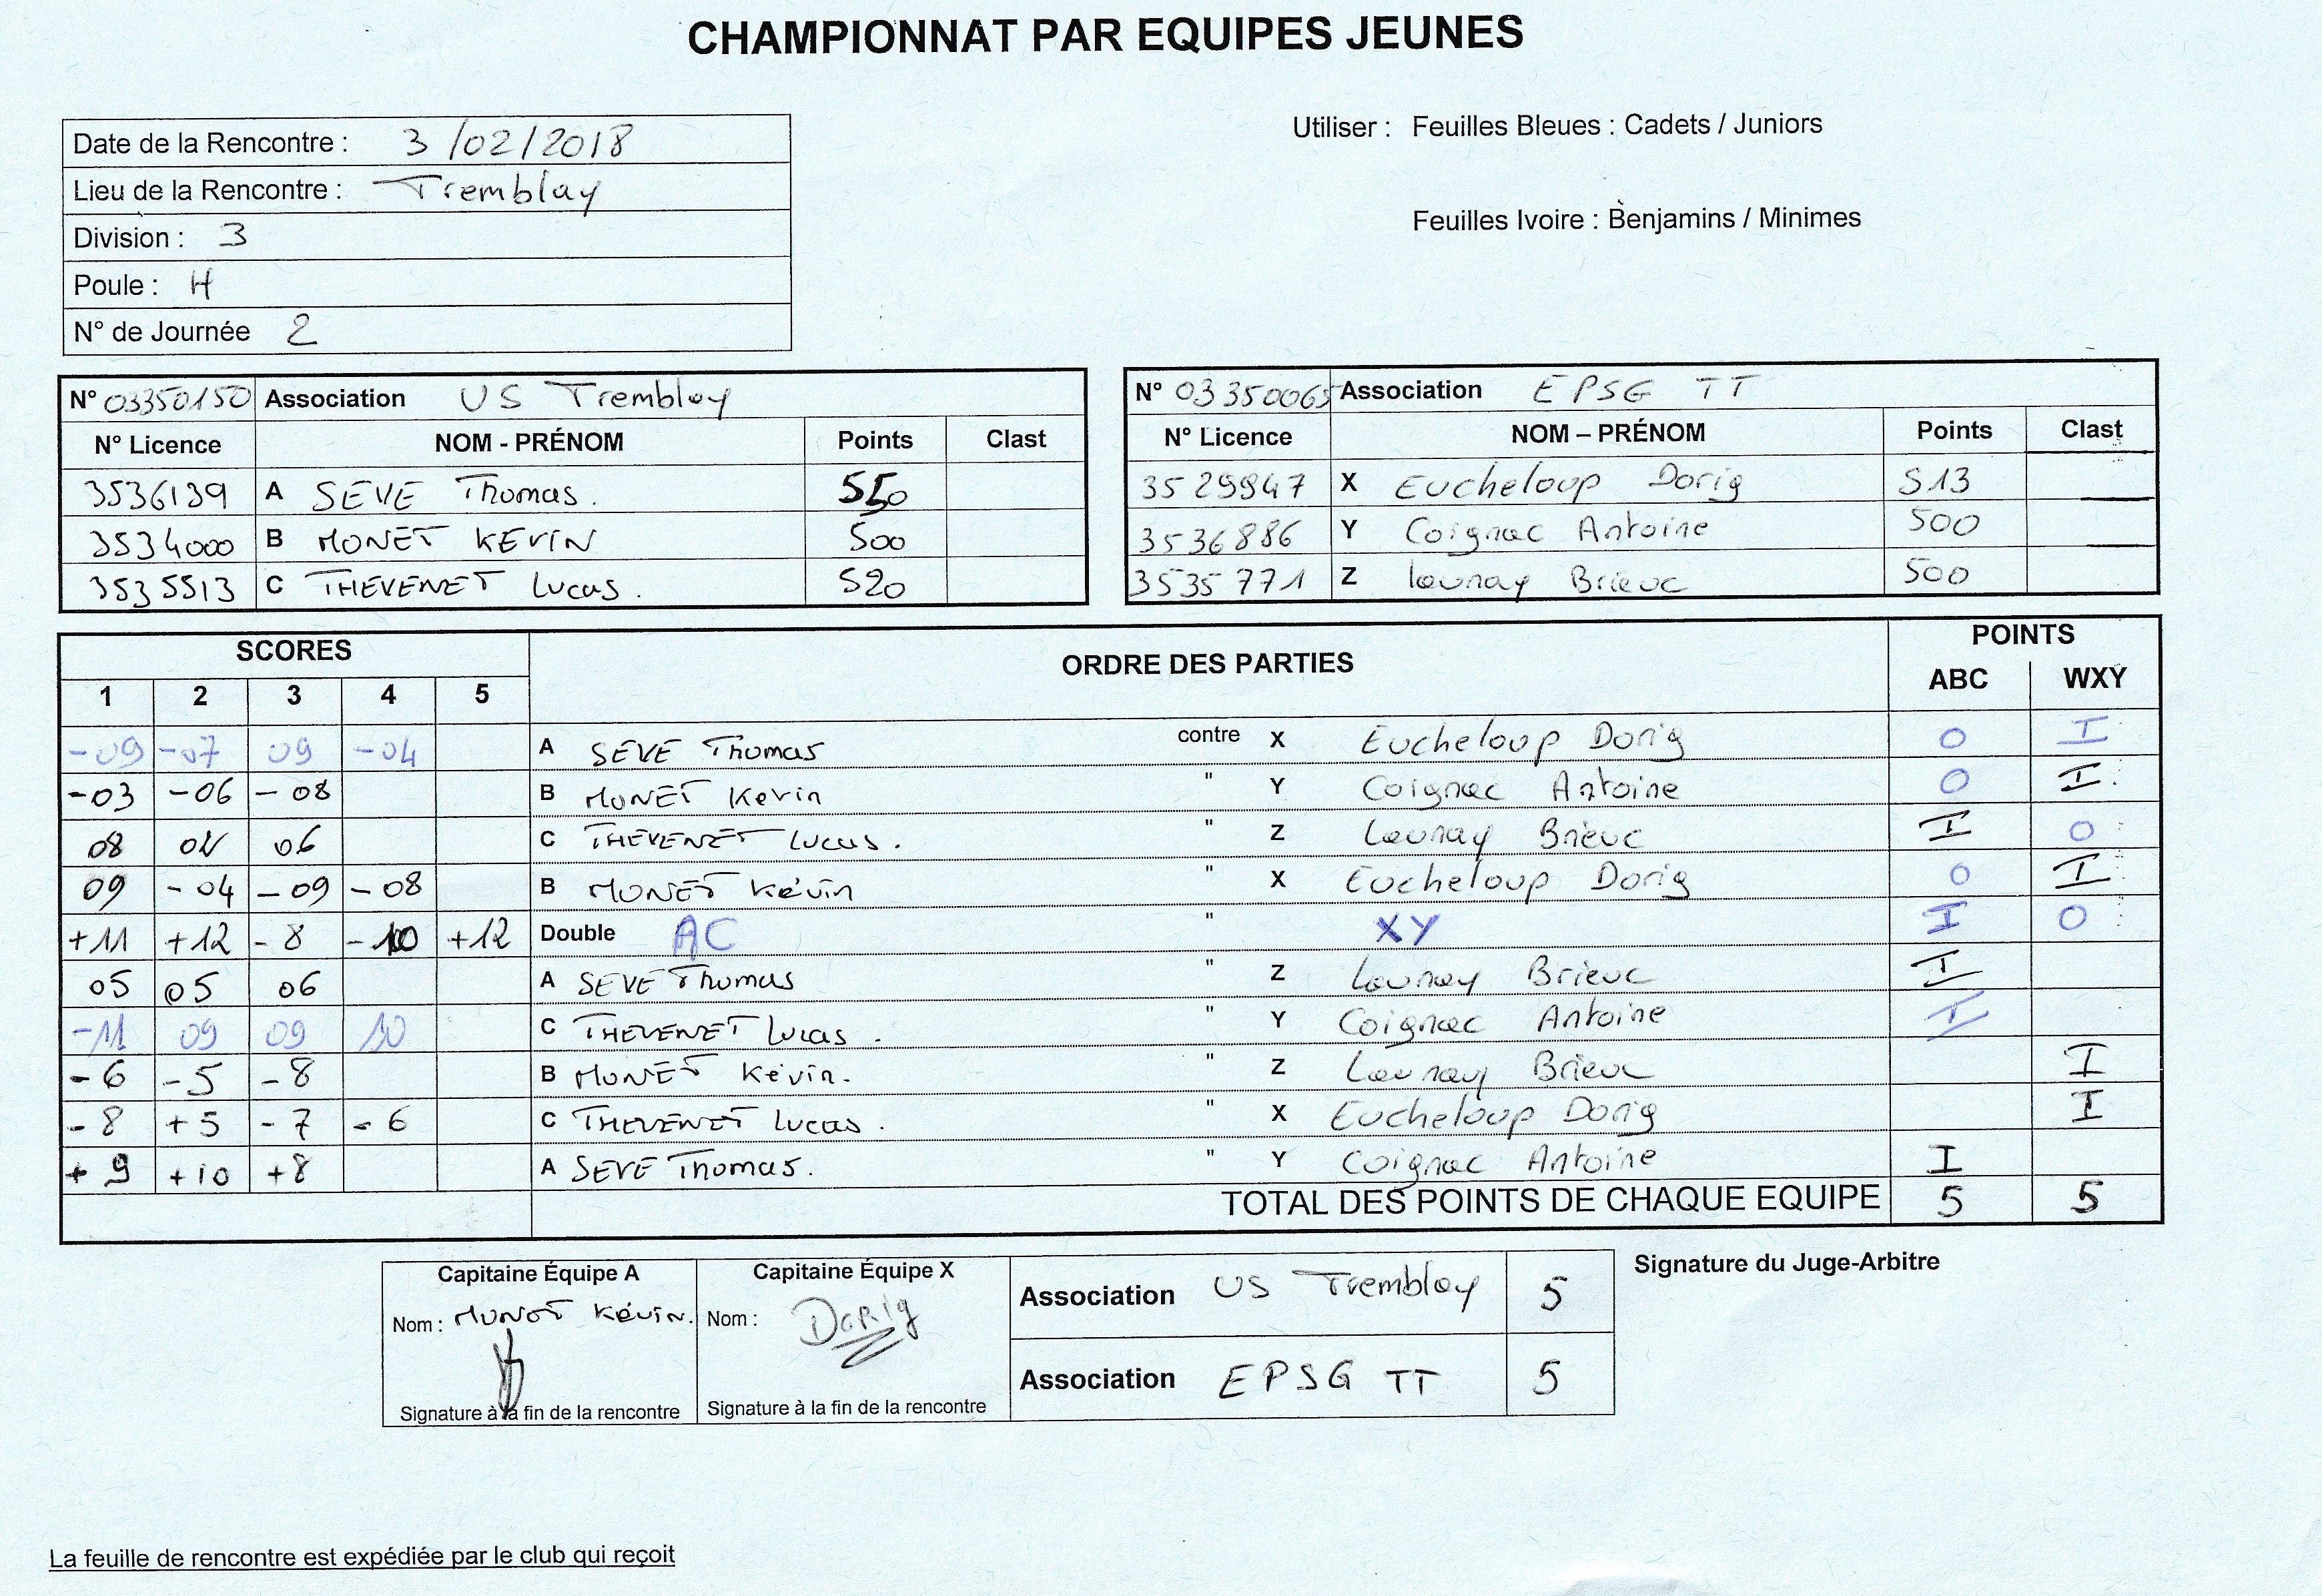 CHAMPIONNAT PAR EQUIPES JEUNES
Utiliser : Feuilles Bleues : Cadets / Juniors
Feuilles Ivoire : Benjamins / Minimes
Date de la Rencontre : 3/02/2018
Lieu de la Rencontre : Tremblay
Division : 3
Poule : H
N° de Journée 2
N° 03350150 Association US Tremblay
N° Licence NOM - PRÉNOM Points Clast
3536139 A SEVE Thomas. 550
3534000 B MONET KEVIN 500
3535513 C THEVENET Lucas. 520
N° 03350065 Association EPSG TT
N° Licence NOM – PRÉNOM Points Clast
3529947 X Eucheloup Dorig 513
3536886 Y Coignac Antoine 500
3535771 Z Launay Brieuc 500
SCORES ORDRE DES PARTIES POINTS
1 2 3 4 5 ABC WXY
-09 -07 09 -04 A SEVE Thomas contre X Eucheloup Dorig 0 I
-03 -06 -08 B MONET Kevin " Y Coignac Antoine 0 I
08 02 06 C THEVENET Lucas. " Z Launay Brieuc I 0
09 -04 -09 -08 B MONET Kévin " X Eucheloup Dorig 0 I
+11 +12 -8 -10 +12 Double AC " XY I 0
05 05 06 A SEVE Thomas " Z Launay Brieuc I
-11 09 09 10 C THEVENET Lucas. " Y Coignac Antoine I
-6 -5 -8 B MONET Kévin. " Z Launay Brieuc I
-8 +5 -7 -6 C THEVENET Lucas. " X Eucheloup Dorig I
+9 +10 +8 A SEVE Thomas. " Y Coignac Antoine I
TOTAL DES POINTS DE CHAQUE EQUIPE 5 5
Capitaine Équipe A
Nom : MONET Kévin.
Signature à la fin de la rencontre
Capitaine Équipe X
Nom : Dorig
Signature à la fin de la rencontre
Association US Tremblay 5
Association EPSG TT 5
Signature du Juge-Arbitre
La feuille de rencontre est expédiée par le club qui reçoit